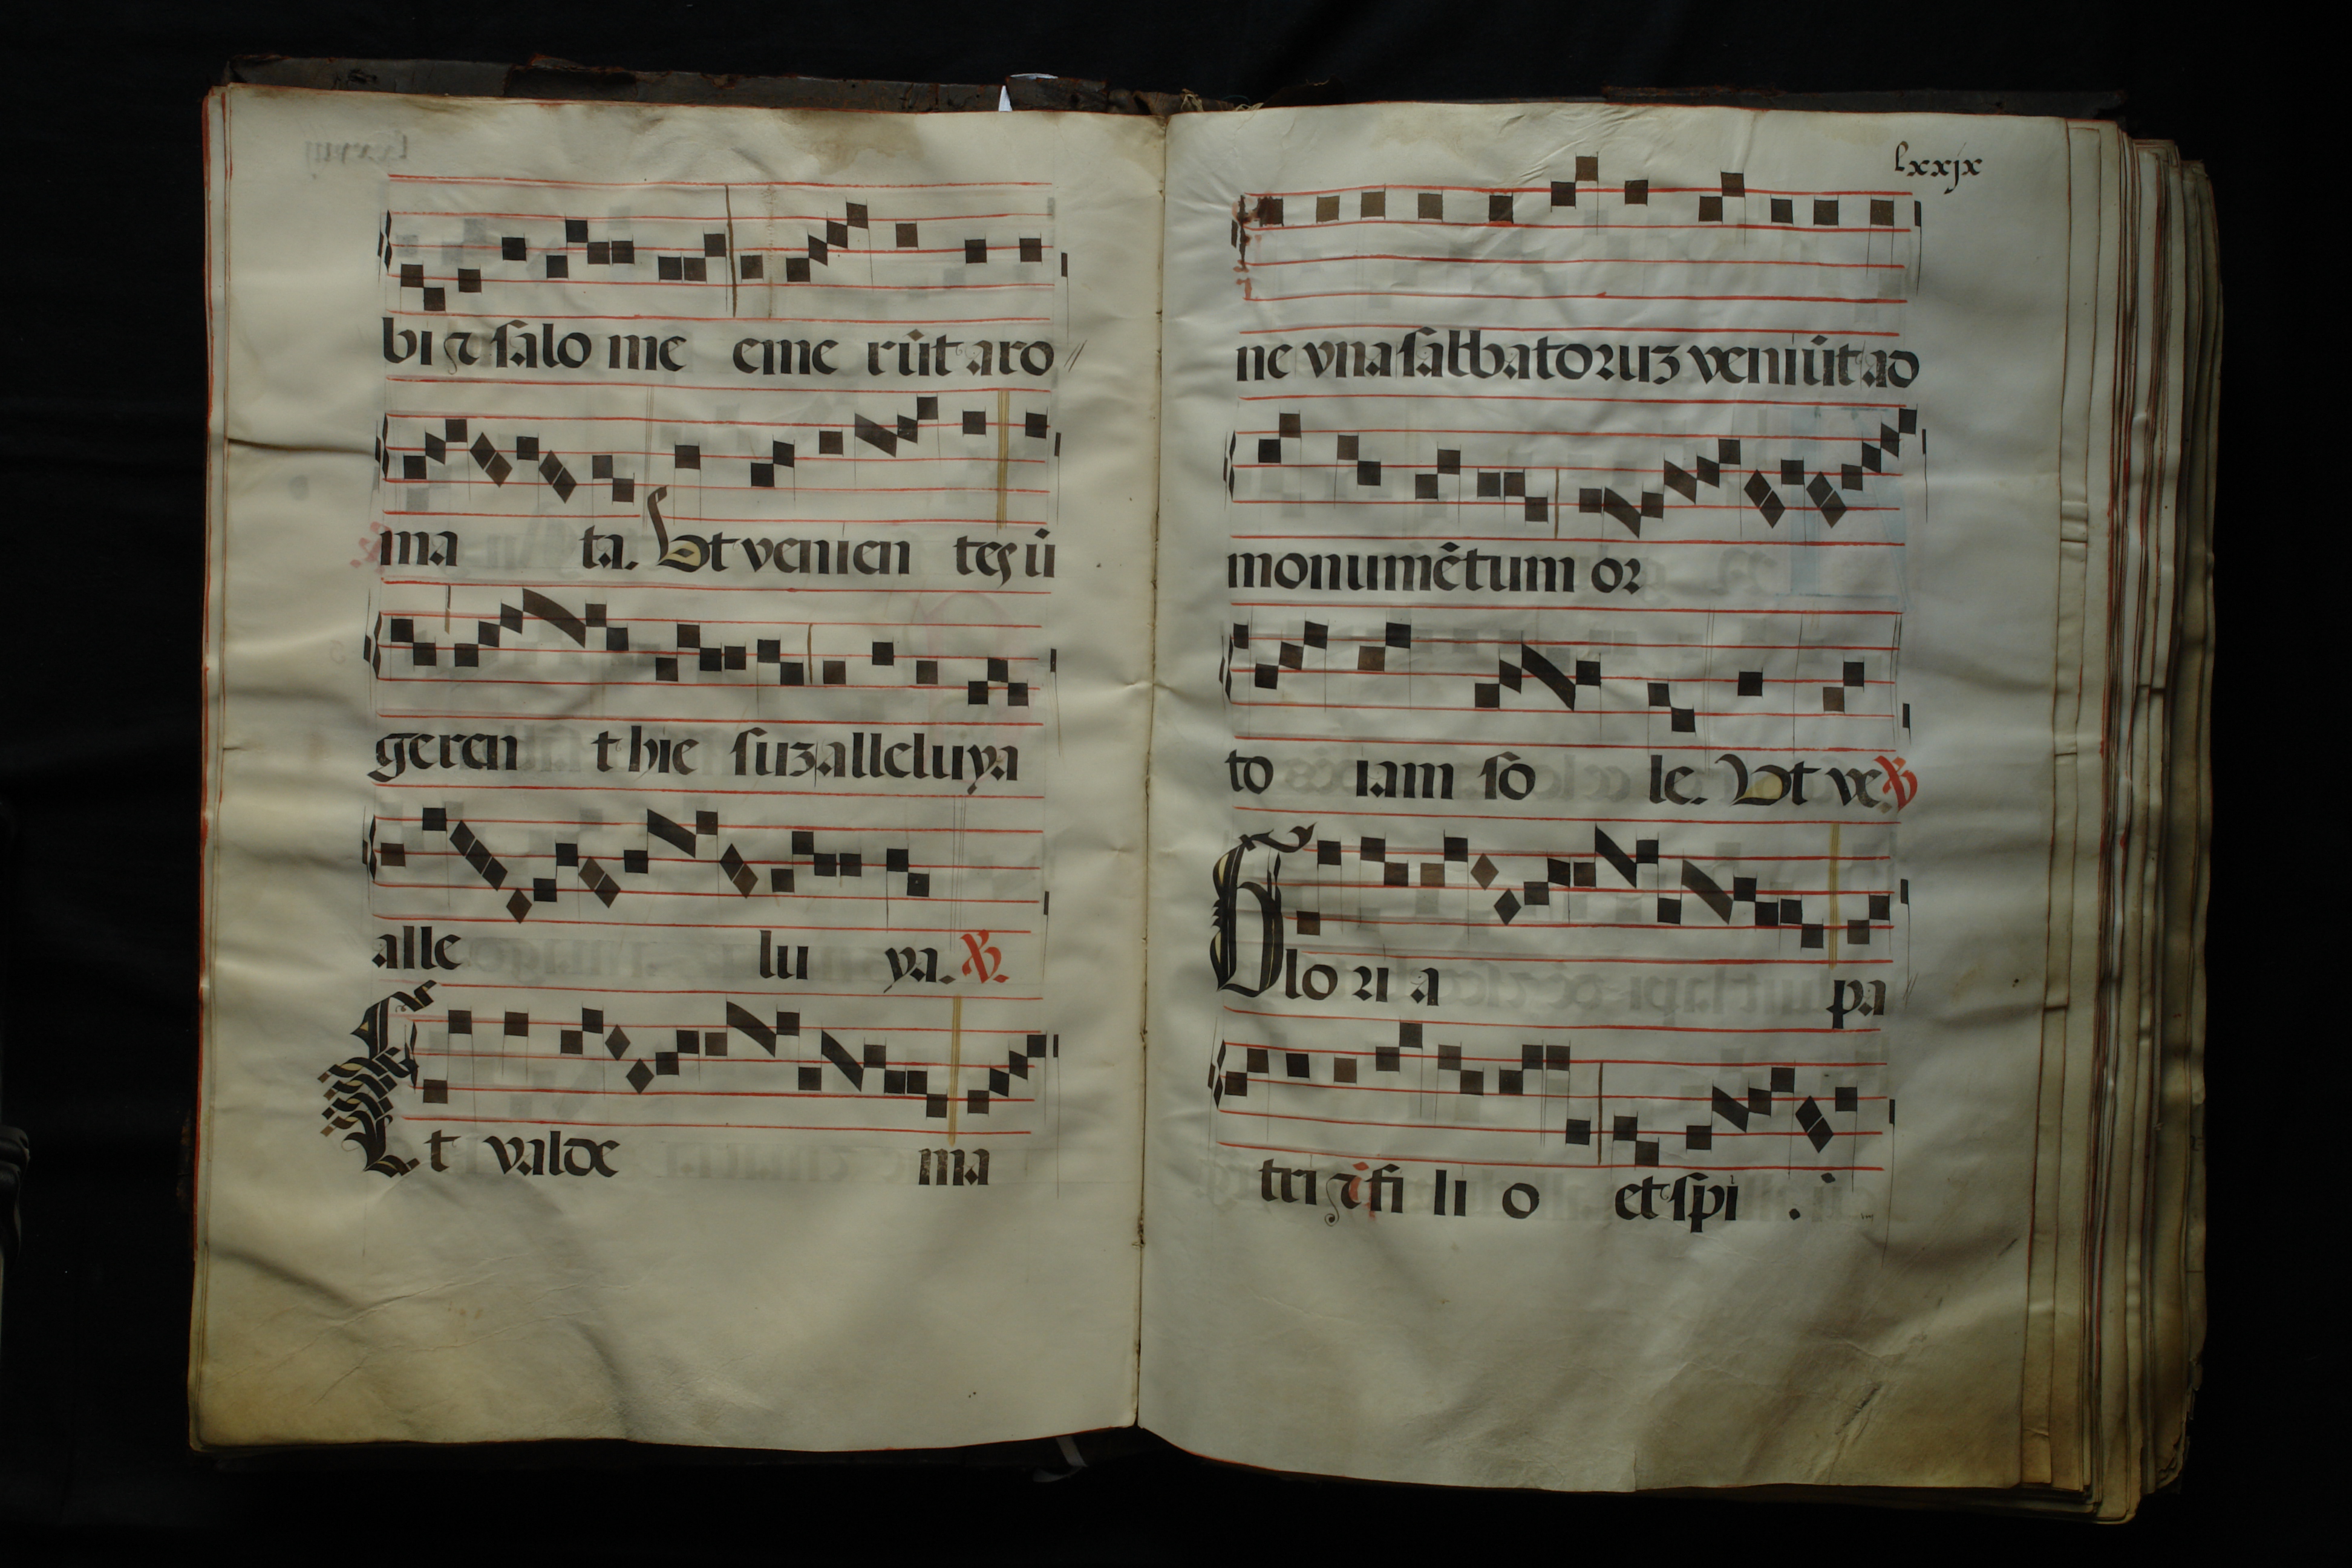 bi ⁊ salo me eme rūt aro
ma ta. Vt venien tes ū
geren t hie suꝫ alleluya
alle lu ya. ℣.
Et valde ma
lxxjx
ne vna sabbatoꝛuꝫ veniūt ad
monumētum oꝛ
to iam so le. Vt ve ℣
Gloꝛia pa
tri ⁊ fi li o et spi . ū